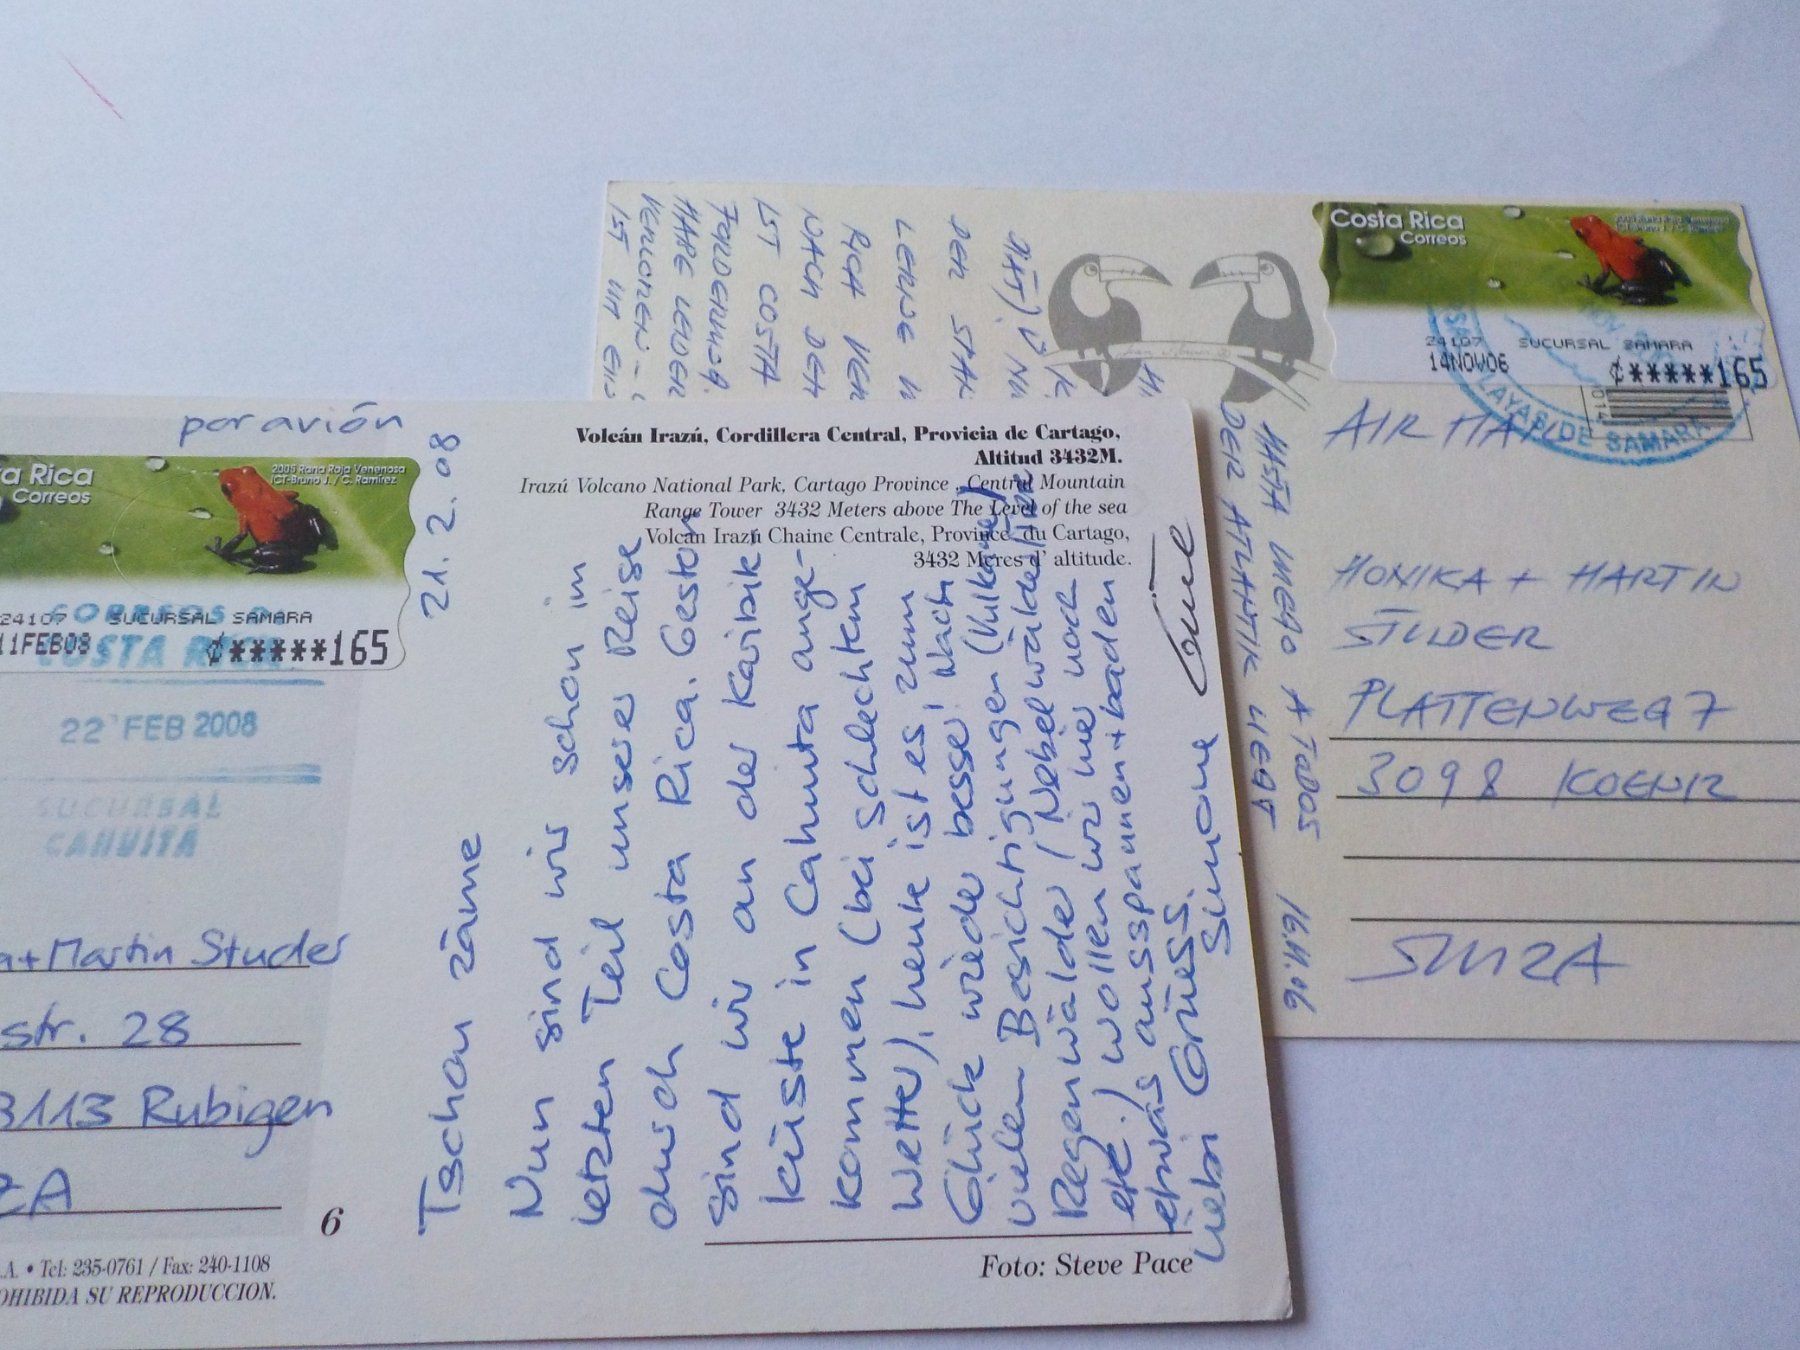 por avión
a Rica
Correos
2005 Rana Roja Venenosa
ICT-Bruno J. / C. Ramírez
24107 SUCURSAL SAMARA
11FEB08 ¢*****165
CORREOS D
COSTA RICA
22 FEB 2008
SUCURSAL
CAHUITA
a+Martin Studer
str. 28
3113 Rubigen
ZA
6
.A. • Tel: 235-0761 / Fax: 240-1108
OHIBIDA SU REPRODUCCION.
Volcán Irazú, Cordillera Central, Provicia de Cartago,
Altitud 3432M.
Irazú Volcano National Park, Cartago Province , Central Mountain
Range Tower 3432 Meters above The Level of the sea
Volcán Irazú Chaine Centrale, Province du Cartago,
3432 Meres d' altitude.
21.2.08
Tschou zäme
Nun sind wir schon im
letzten Teil unserer Reise
durch Costa Rica. Gestern
sind wir an der Karibik
küste in Cahuita ange-
kommen (bei schlechtem
Wetter), heute ist es zum
Glück wieder besser. Nach
vielen Besichtigungen (Vulkane)
Regenwälder / Nebelwälder
etc.) wollen wir hier noch
etwas ausspannen + baden
liebi Grüess
Simone
Foto: Steve Pace
Costa Rica
Correos
24107 SUCURSAL SAMARA
14NOV06 ¢*****165
PLAYAS DE SAMARA
AIR MAIL
MONIKA + MARTIN
STUDER
PLATTENWEG 7
3098 KOENIZ
SUIZA
IST COSTA
NACH DER
RICA VER
LERNE
DER
FORDERUNG.
HABE LEIDER
IST
DER ATLANTIK LIEGT
HASTA LUEGO A TODOS
16.11.06